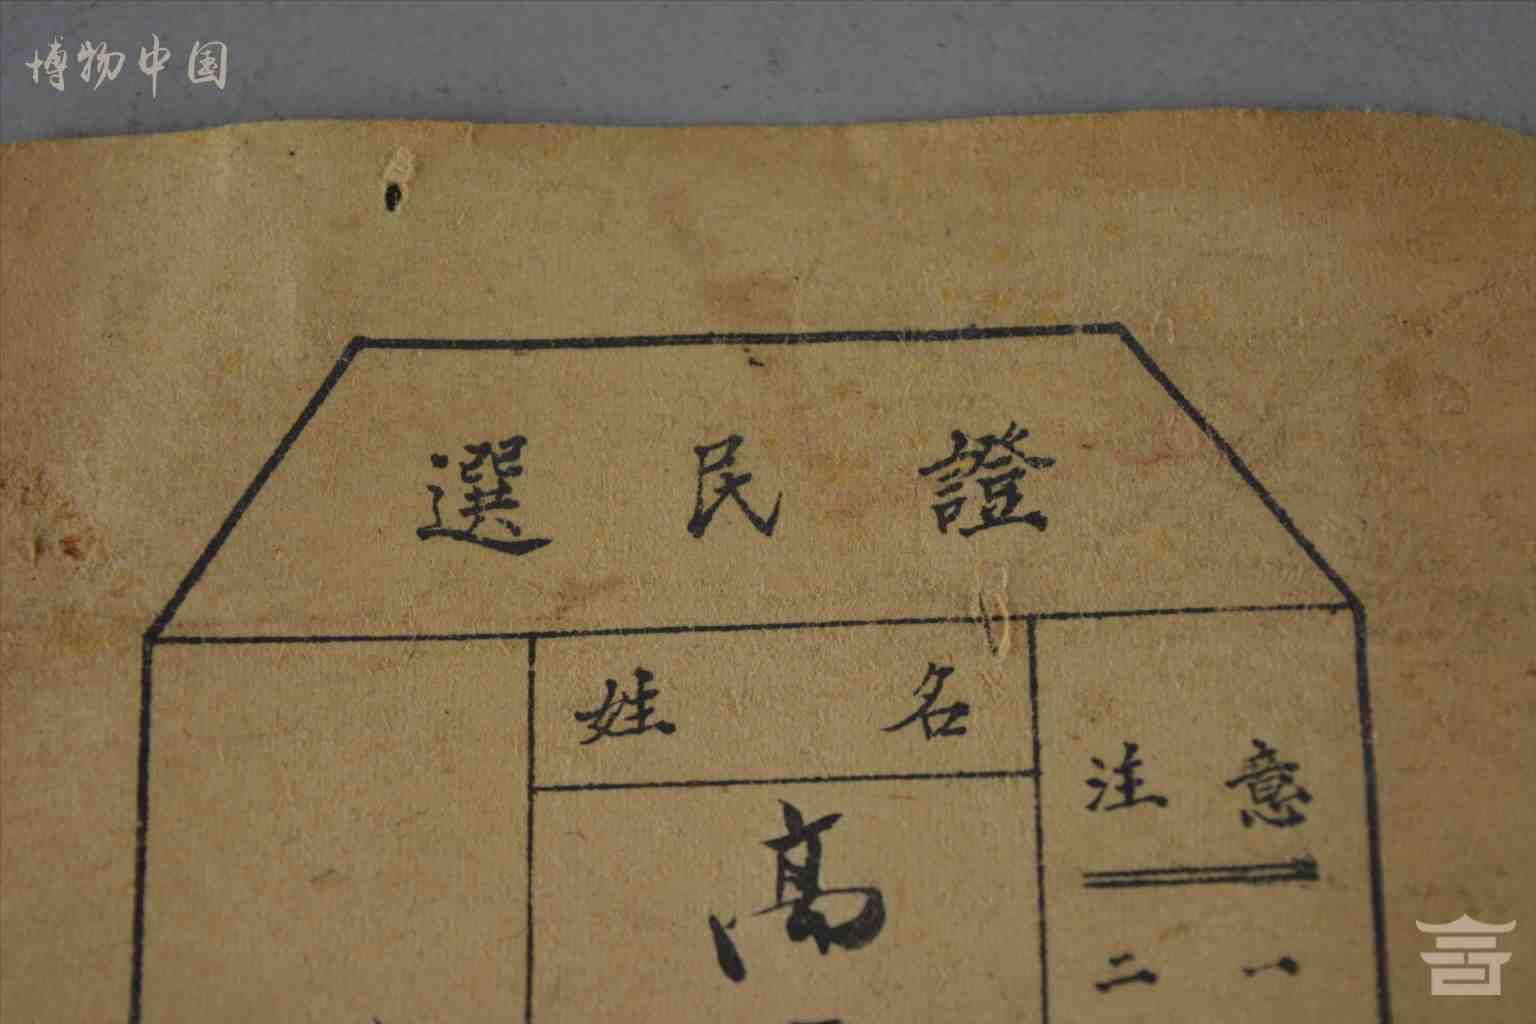 博物中国
選民證
姓名
注意
高
二 一